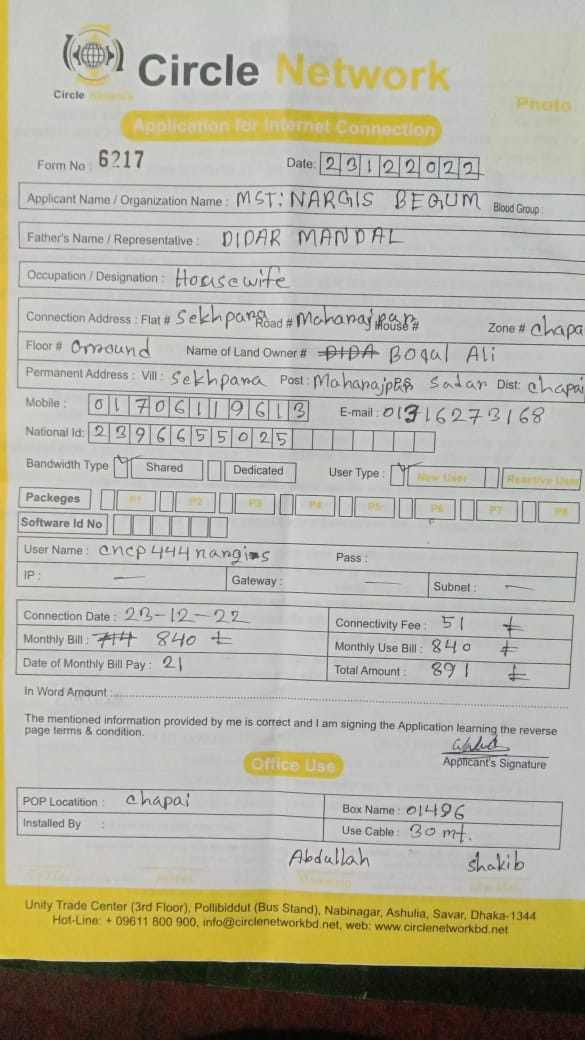 Circle Network
Circle Network
Photo
Application for Internet Connection
Form No : 6217 Date: 23122022
Applicant Name / Organization Name : MST: NARGIS BEGUM Blood Group :
Father's Name / Representative : DIDAR MANDAL
Occupation / Designation : Housewife
Connection Address : Flat # Sekhpara Road # Maharajpur House # Zone # chapa
Floor # Ground Name of Land Owner # DIDA Bogal Ali
Permanent Address : Vill : Sekhpara Post : Maharajpur Sadar Dist: Chapai
Mobile : 01706119613 E-mail : 01716273168
National Id: 2396655025
Bandwidth Type Shared Dedicated User Type : New User Reactive User
Packeges P1 P2 P3 P4 P5 P6 P7 P8
Software Id No
User Name : cncp444nargis Pass :
IP : — Gateway : — Subnet : —
Connection Date : 23-12-22 Connectivity Fee : 51
Monthly Bill : 714 840 Monthly Use Bill : 840
Date of Monthly Bill Pay : 21 Total Amount : 891
In Word Amount :
The mentioned information provided by me is correct and I am signing the Application learning the reverse
page terms & condition.
Applicant's Signature
Office Use
POP Locatition : chapai Box Name : 01496
Installed By : Use Cable : 30 mt.
Abdullah shakib
Marketing
Unity Trade Center (3rd Floor), Pollibiddut (Bus Stand), Nabinagar, Ashulia, Savar, Dhaka-1344
Hot-Line: + 09611 800 900, info@circlenetworkbd.net, web: www.circlenetworkbd.net